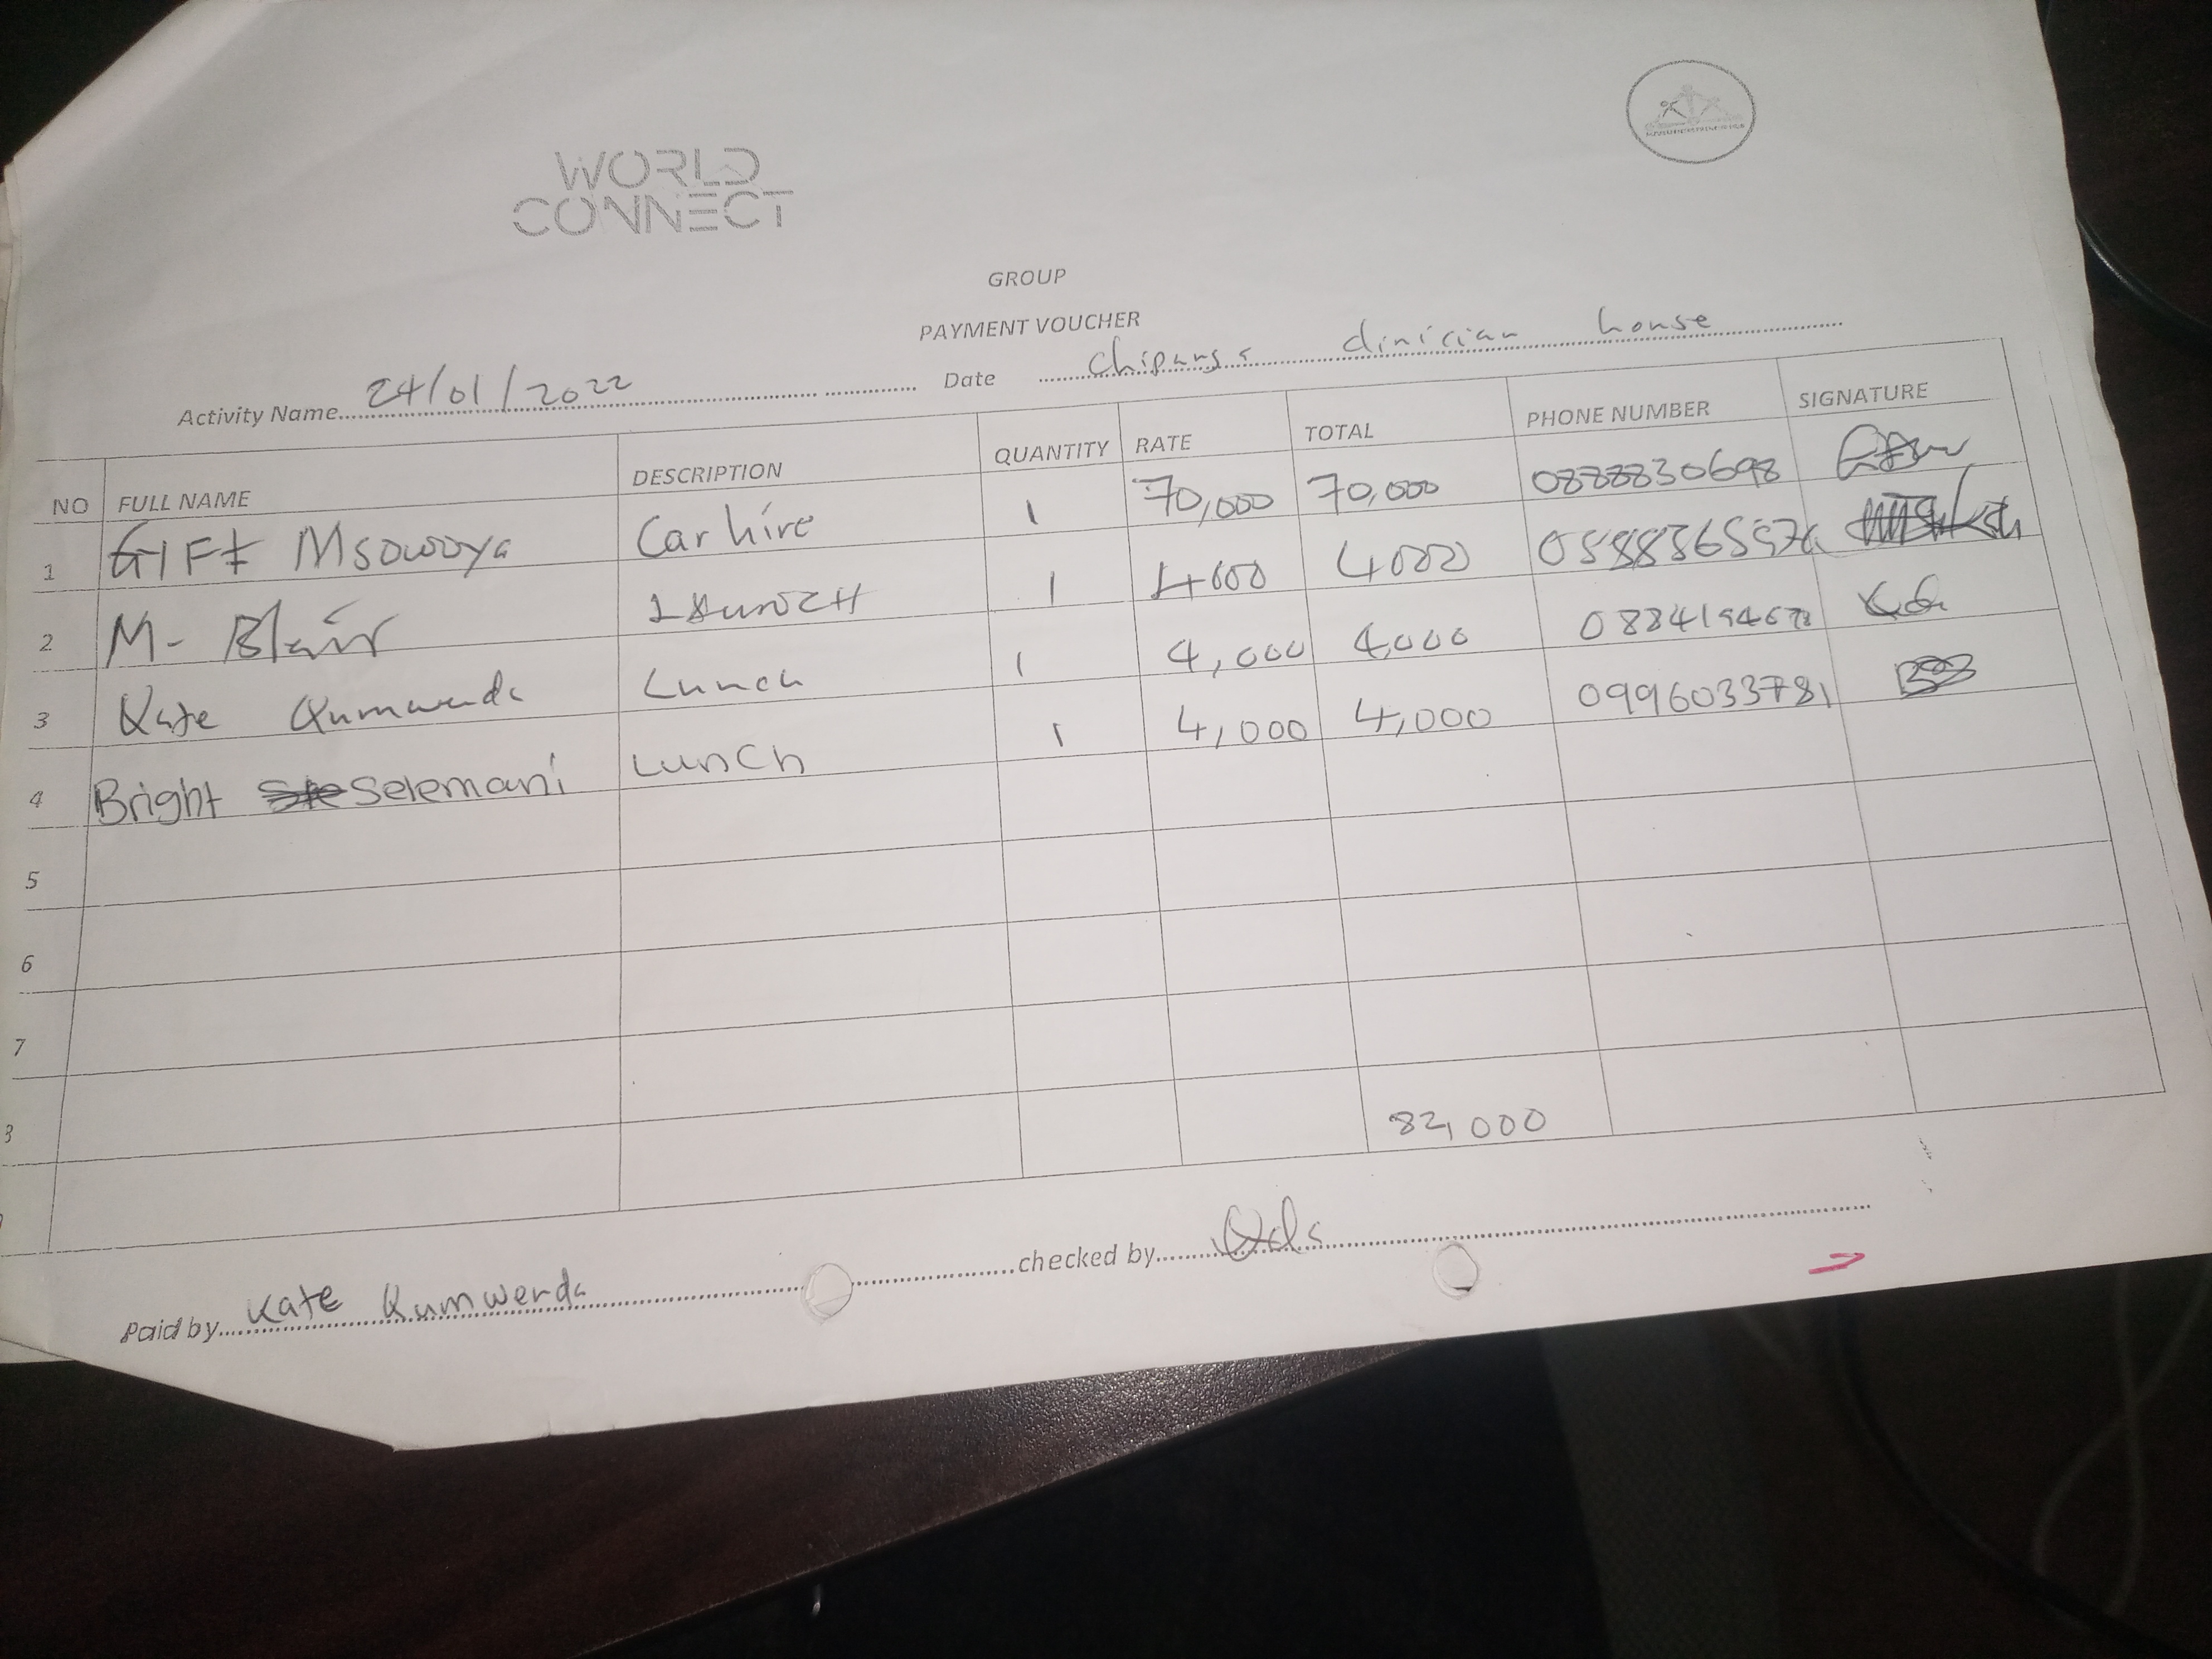 WORLD
CONNECT
GROUP
PAYMENT VOUCHER
Activity Name 24/01/2022 Date clinician house
NO FULL NAME DESCRIPTION QUANTITY RATE TOTAL PHONE NUMBER SIGNATURE
1 GIFt Msowoya Car hire 1 70,000 70,000 0888830698
2 M- Blair 1 4000 4000
3 Kate Kumwenda Lunch 1 4,000 4,000
4 Bright Selemani Lunch 1 4,000 4,000 0996033781
5
6
7
8 82,000
Paid by Kate Kumwenda checked by